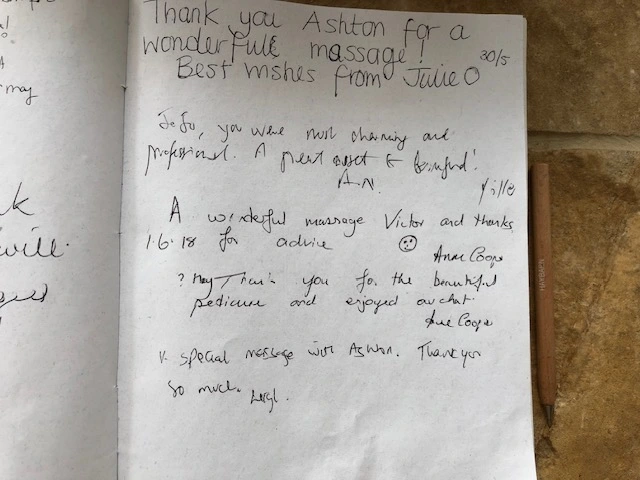 may
k
will.
Thank you Ashton for a
wonderfull massage! 30/5
Best wishes from Julie O
JoJo, you were most charming and
professional. A great asset to
A.N.
A wonderful massage Victor and thanks
1.6.18 for advice ☺ Anne Cooper
? May Thank you for the beautiful
pedicure and enjoyed our chat.
Anne Cooper
V. special massage with Ashton. Thank you
so much. Leigh.